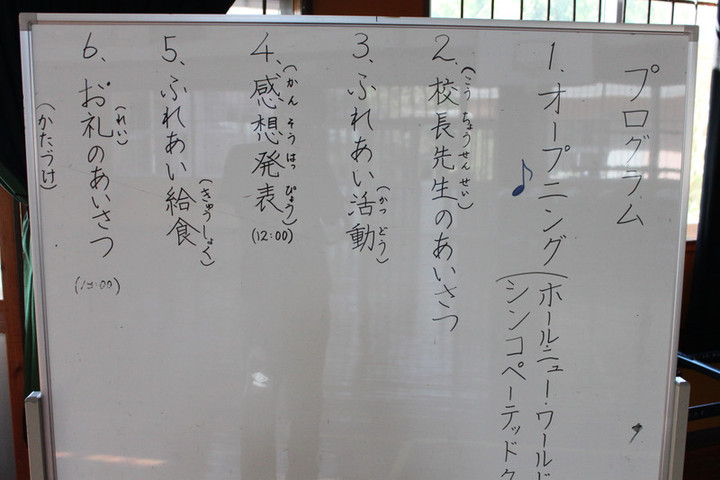 プログラム
1. オープニング♪(ホール・ニュー・ワールド
シンコペーテッドク
2. 校長先生のあいさつ
(こうちょうせんせい)
3. ふれあい活動
(かつどう)
4. 感想発表(12:00)
(かんそうはっぴょう)
5. ふれあい給食
(きゅうしょく)
6. お礼のあいさつ(13:00)
(れい)
(かたづけ)